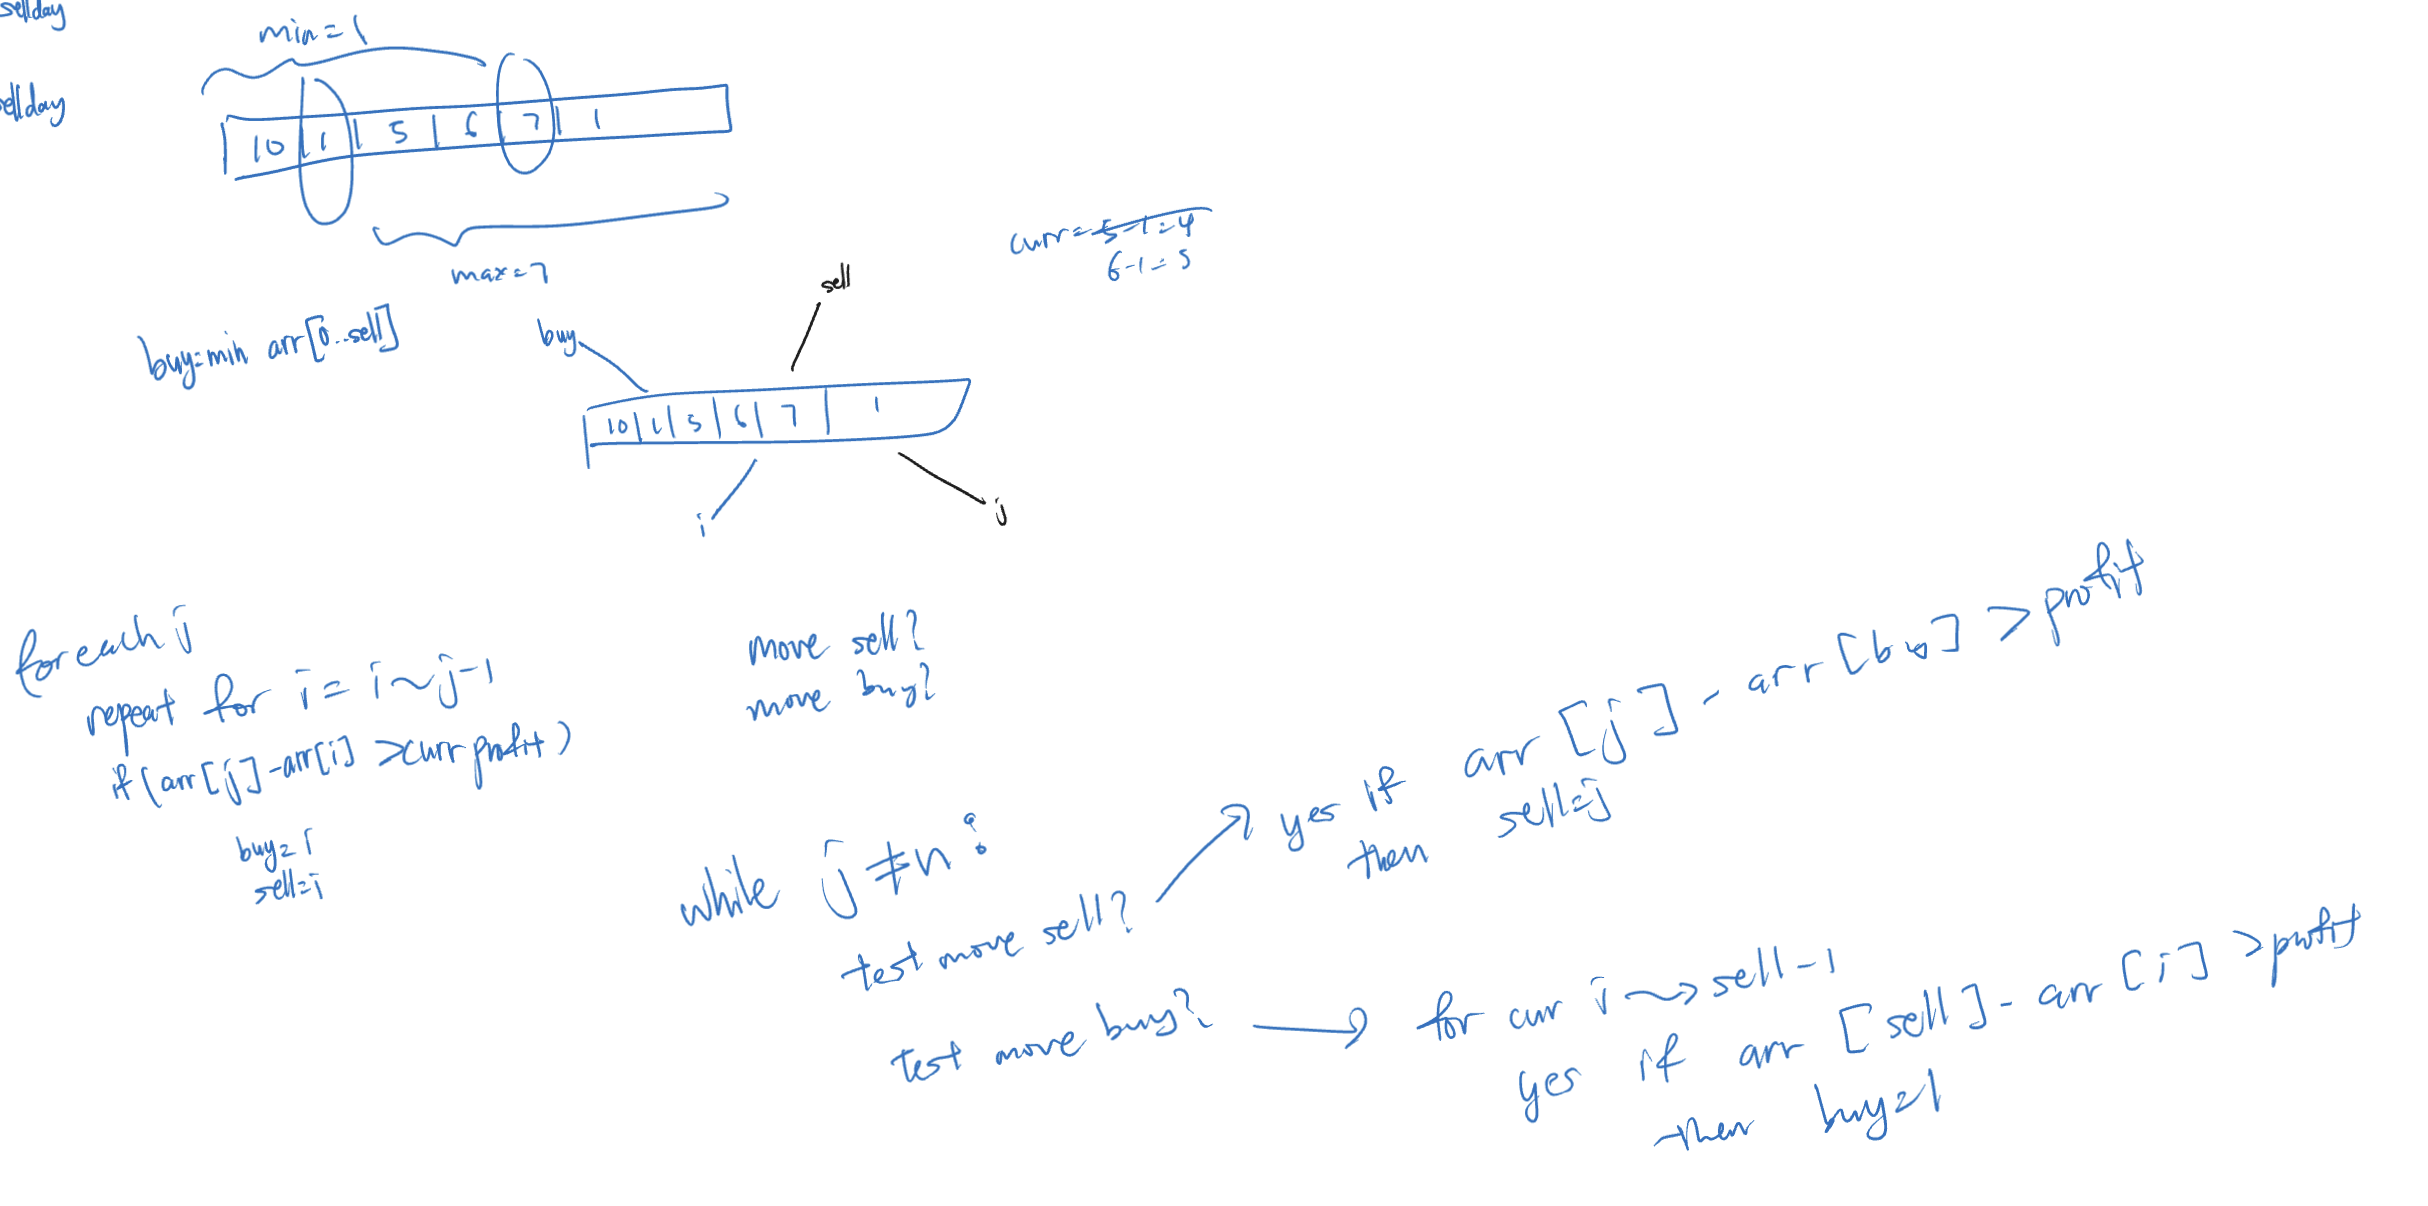 sellday
min=1
sellday
10 | 1 | 5 | 6 | 7 | 1
max=7
curr=5-1=4
6-1=5
sell
buy=min arr[0..sell]
buy
10 | 1 | 5 | 6 | 7 | 1
i
j
for each j
repeat for i= i~j-1
if (arr[j]-arr[i] >curr profit)
buy=i
sell=j
move sell?
move buy?
while j≠n:
test move sell?
yes if arr[j] - arr[buy] > profit
then sell=j
test move buy?
for curr i→sell-1
yes if arr[sell] - arr[i] >profit
then buy=i